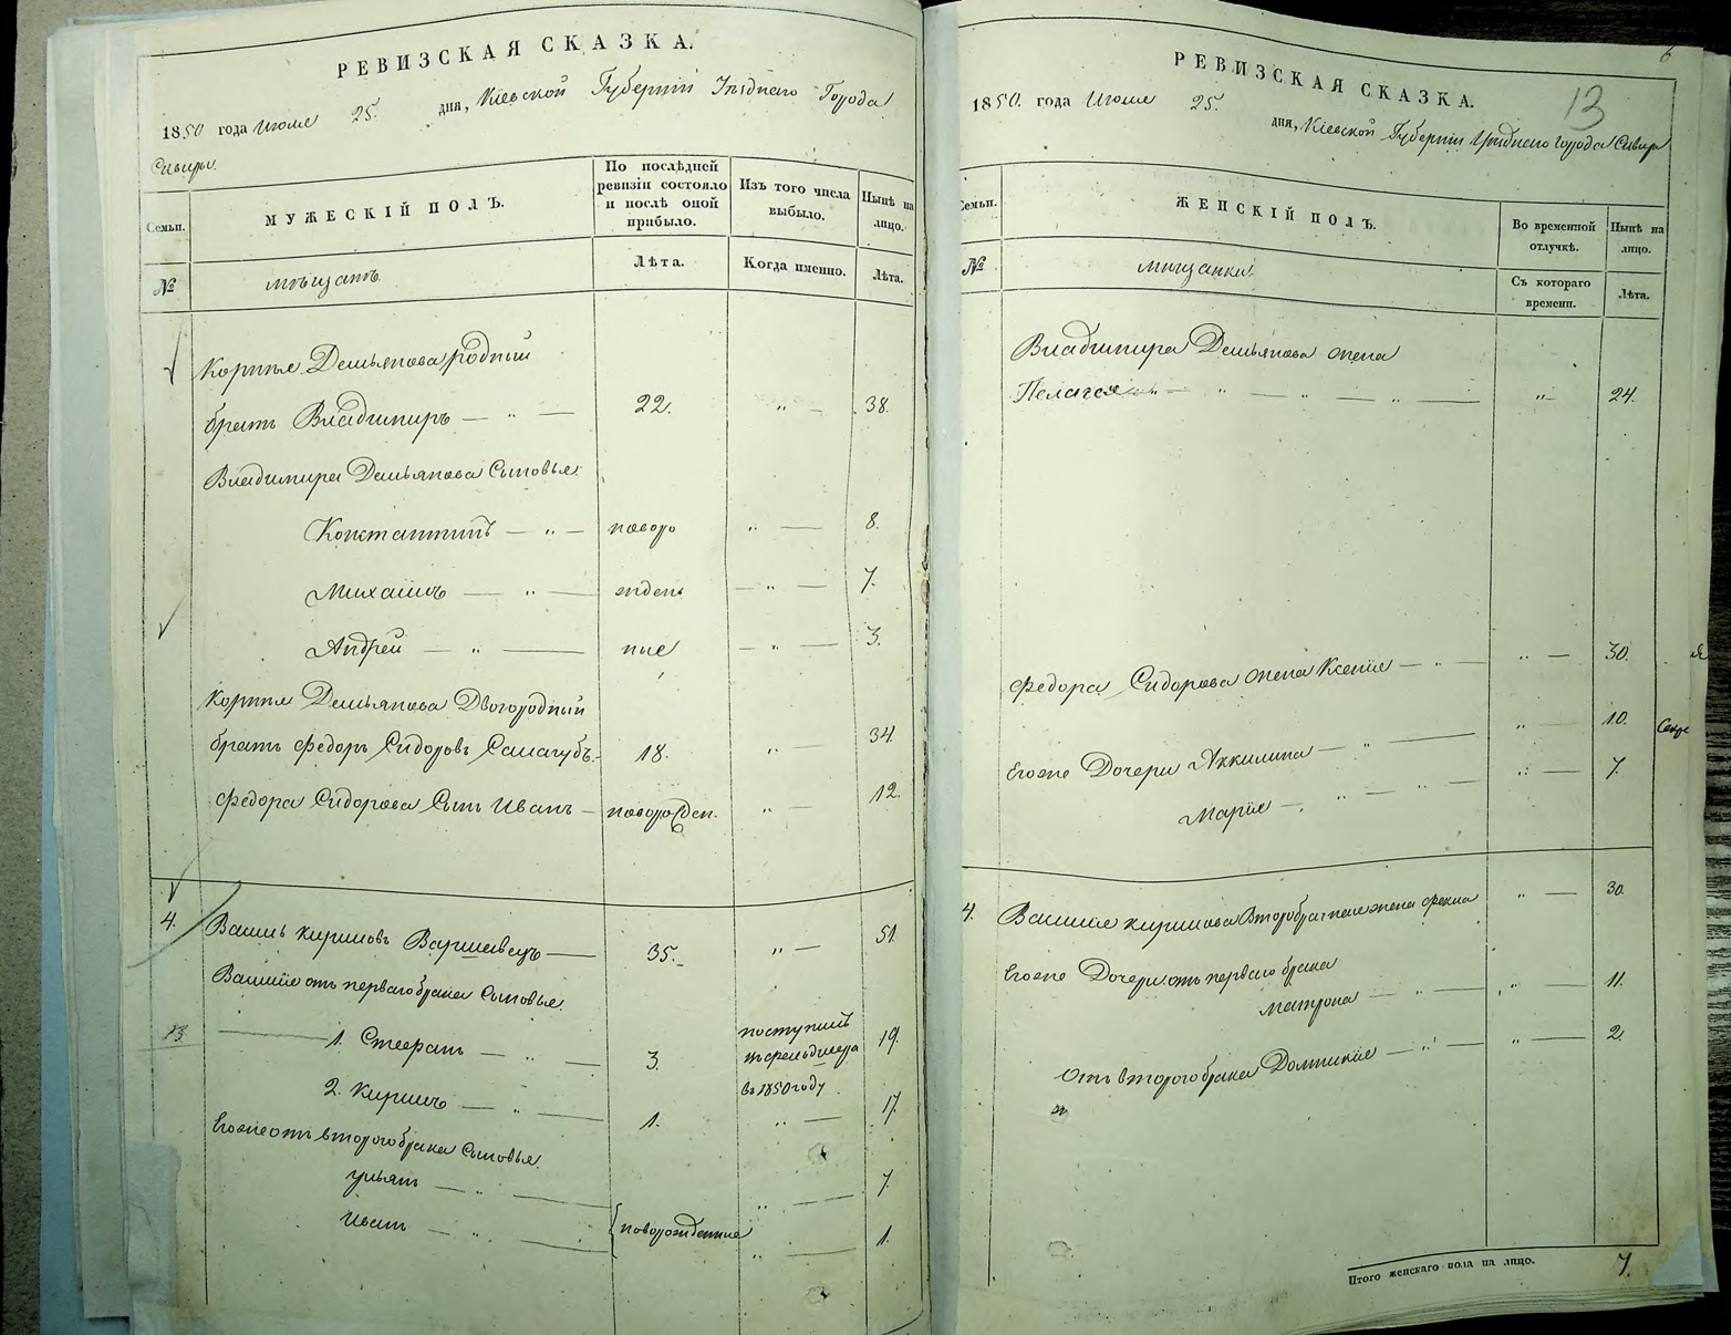 РЕВИЗСКАЯ СКАЗКА.
1850 года Июля 25. дня, Кіевской Губерніи Уѣзднаго Города
Сквиры.
Семьи.
МУЖЕСКІЙ ПОЛЪ.
По послѣдней
ревизіи состояло
и послѣ оной
прибыло.
Изъ того числа
выбыло.
Нынѣ на
лицо.
№
мѣщанъ.
Лѣта.
Когда именно.
Лѣта.
Корнѣя Демьянова родный
братъ Владимиръ — " — 22. " — 38.
Владимира Демьянова Сыновья:
Константинъ — " — новоро " — 8.
Михаилъ — " — жден — " — 7.
Андрей — " — ные — " — 3.
Корнѣя Демьянова Двоюродный
братъ Федоръ Сидоровъ Самагубъ. 18. " — 34.
Федора Сидорова Сынъ Иванъ — новорожден. " — 12.
4. Василь Кириловъ Варшавецъ — 35. " — 51.
Василія отъ перваго брака Сыновья:
13. 1. Стефанъ — " — 3. поступилъ
въ 1850 году 19.
2. Кирилъ — " — 1. " — 17.
Его же отъ втораго брака Сыновья:
Ульянъ — " — " — 7.
Иванъ — " — новорожденные " — 1.
6
13
РЕВИЗСКАЯ СКАЗКА.
1850. года Июля 25. дня, Кіевской Губерніи Уѣзднаго Города Сквиры
Семьи.
ЖЕНСКІЙ ПОЛЪ.
Во временной
отлучкѣ.
Нынѣ на
лицо.
№
мѣщанки.
Съ котораго
времени.
Лѣта.
Владимира Демьянова жена
Пелагея — " — " — " — " — 24.
Федора Сидорова жена Ксенія — " — " — 30.
Его же Дочери Аккилина — " — " — 10.
Марія — " — " — " — 7.
4. Василія Кирилова Второбрачная жена Фекла " — 30.
Его же Дочери отъ перваго брака
Матрона — " — " — 11.
Отъ втораго брака Домникія — " — " — 2.
Итого женскаго пола на лицо. 7.